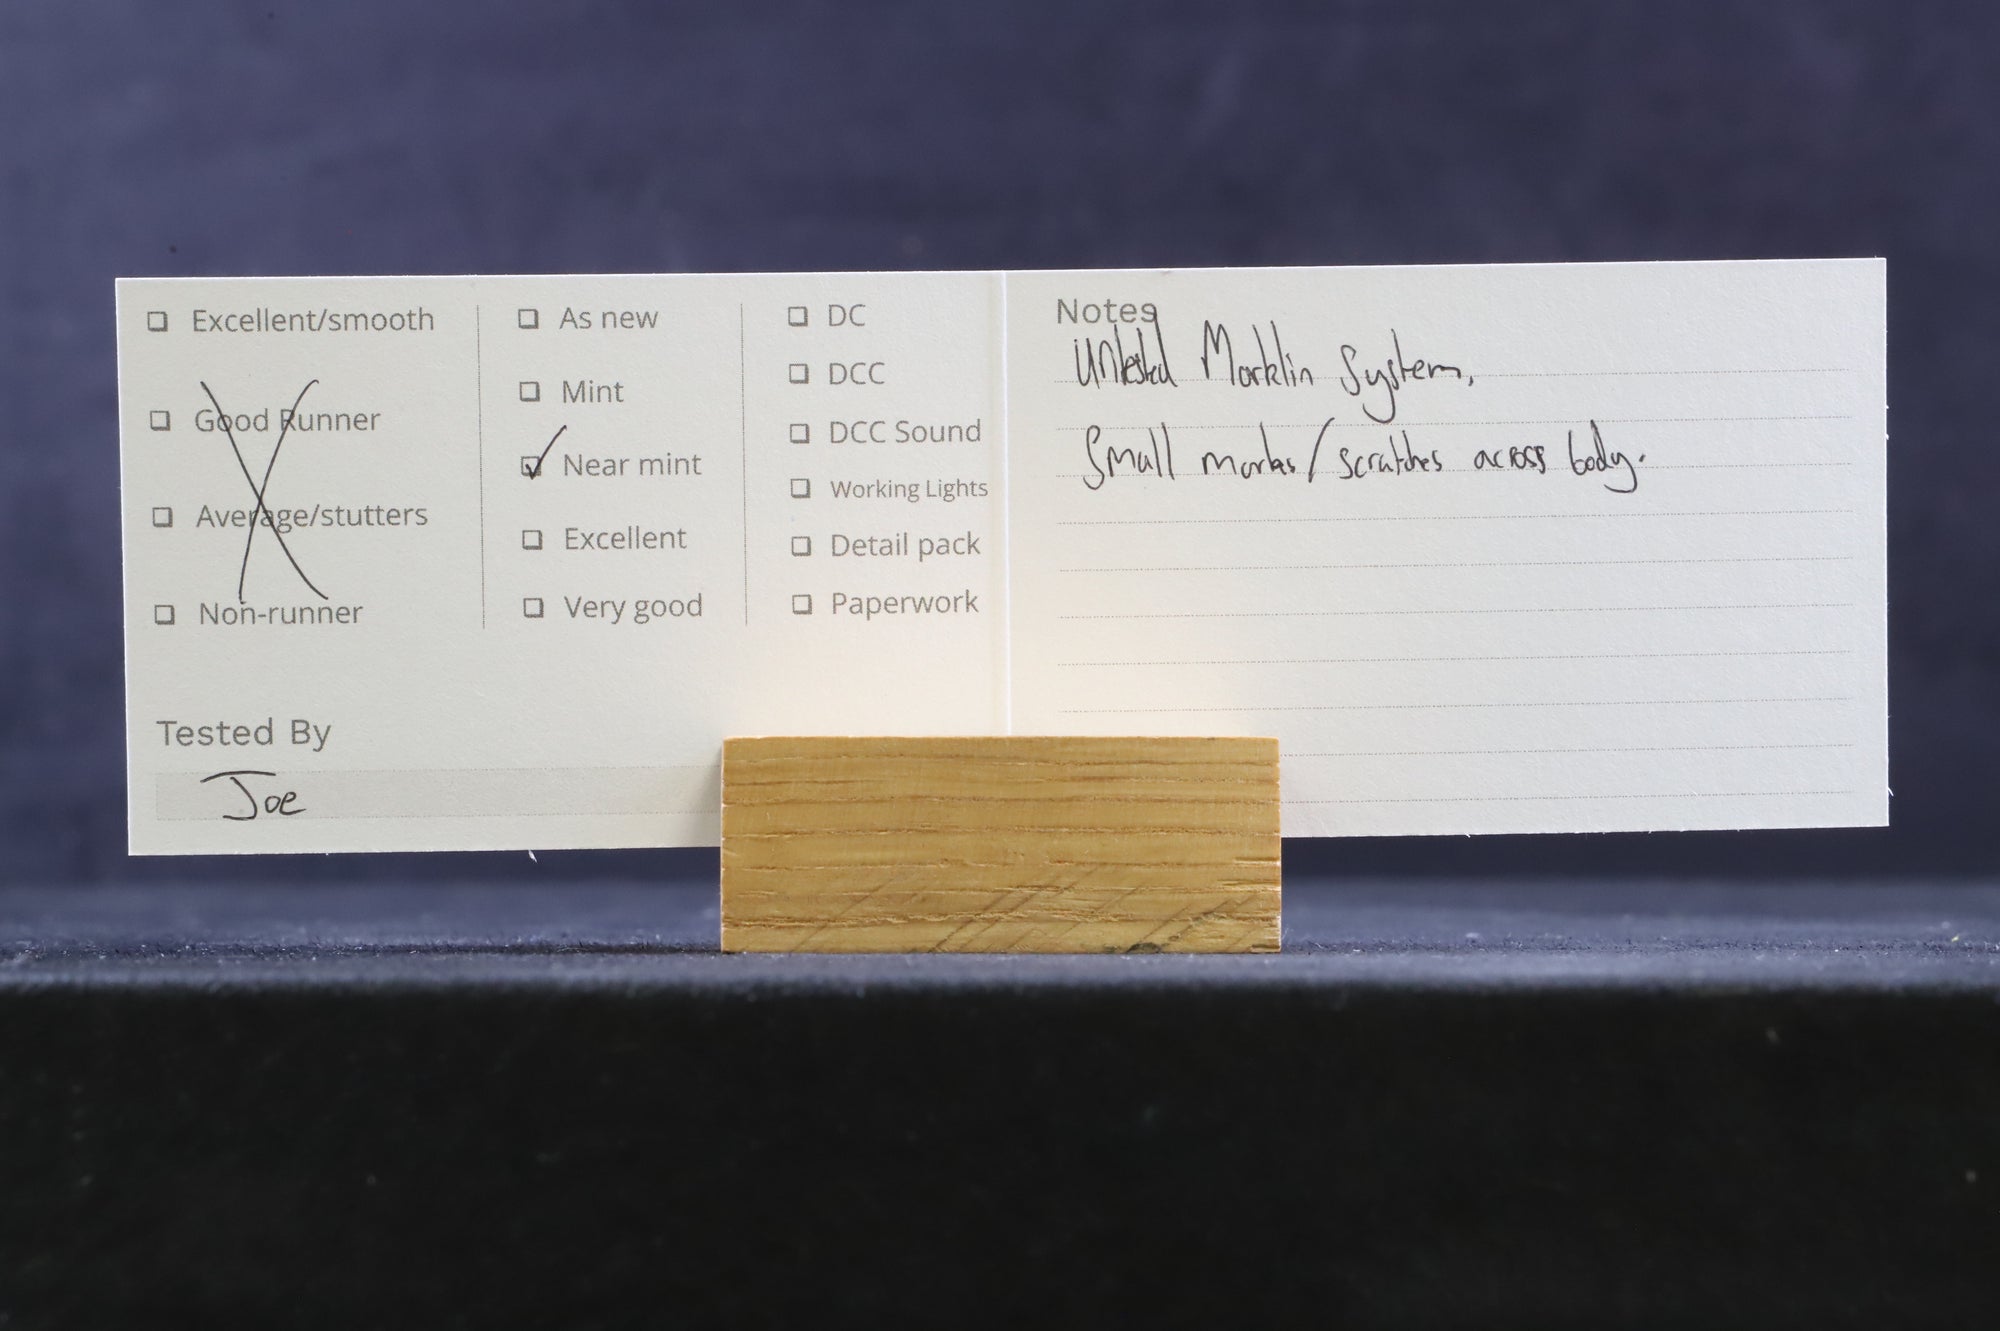 Excellent/smooth
Good Runner
Average/stutters
Non-runner
As new
Mint
Near mint
Excellent
Very good
DC
DCC
DCC Sound
Working Lights
Detail pack
Paperwork
Tested By
Joe
Notes
Untested Marklin System,
Small marks/scratches across body.